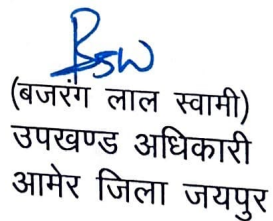 (बजरंग लाल स्वामी)
उपखण्ड अधिकारी
आमेर जिला जयपुर